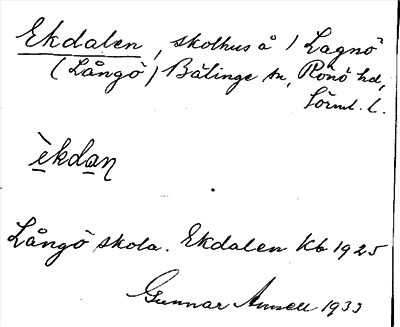 Ekdalen, skolhus å / Lagnö
(Långö) Bälinge sn, Rönö hd,
Sörml. l.
èkdan
Långö skola. Ekdalen Kb 1925
Gunnar Annell 1933